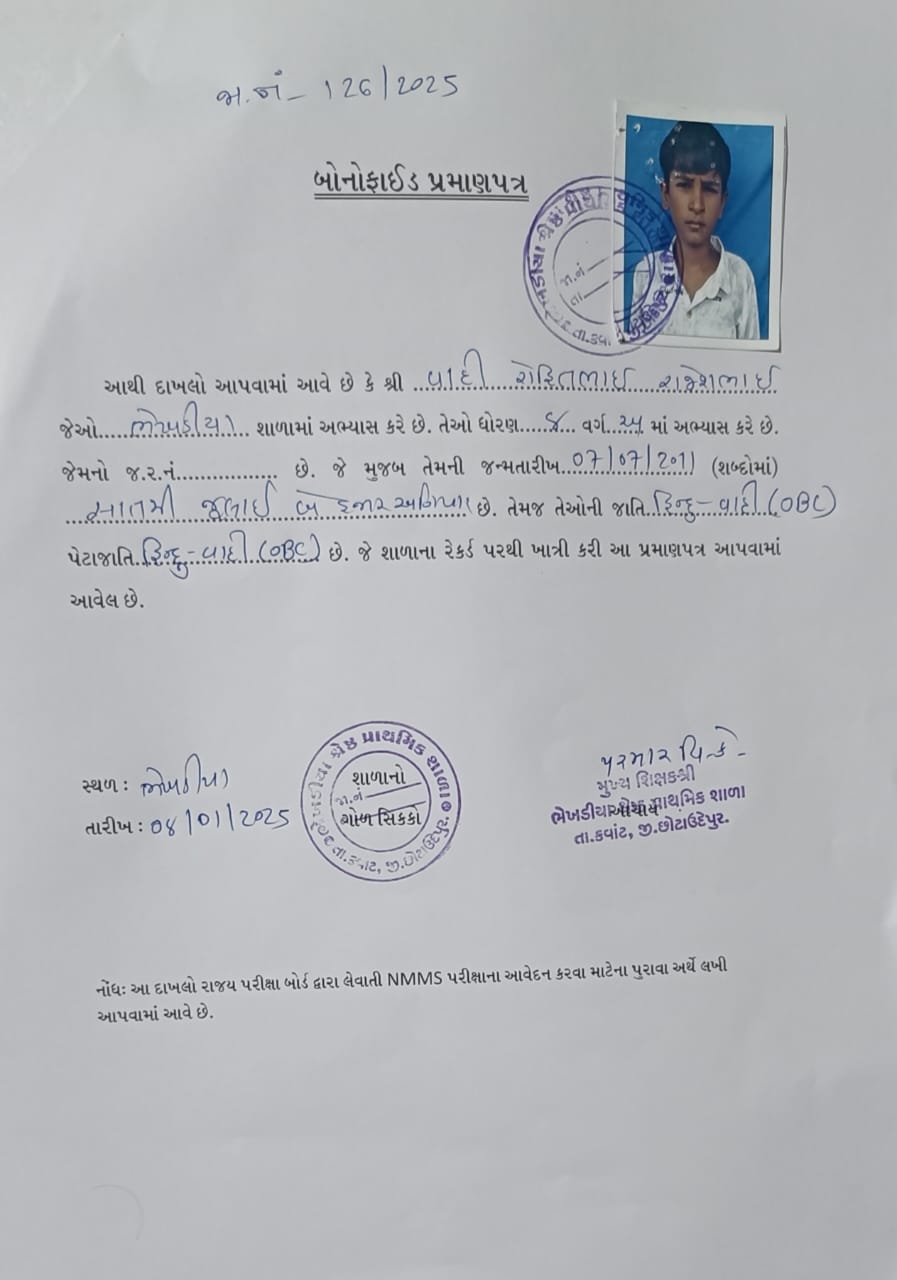 જા.નં - 126/2025
બોનોફાઈડ પ્રમાણપત્ર
આથી દાખલો આપવામાં આવે છે કે શ્રી ...વાદી રોહિતભાઈ રાજેશભાઈ
જેઓ....ભેખડીયા... શાળામાં અભ્યાસ કરે છે. તેઓ ધોરણ.....૮... વર્ગ...અ.. માં અભ્યાસ કરે છે.
જેમનો જ.ર.નં.................. છે. જે મુજબ તેમની જન્મતારીખ..07/07/2011 (શબ્દોમાં)
...સાતમી જુલાઈ બે હજાર અગિયાર છે. તેમજ તેઓની જાતિ..હિન્દુ - વાદી (OBC)
પેટાજાતિ..હિન્દુ - વાદી (OBC) છે. જે શાળાના રેકર્ડ પરથી ખાત્રી કરી આ પ્રમાણપત્ર આપવામાં
આવેલ છે.
સ્થળ : ભેખડીયા
તારીખ : 08/01/2025
ભેખડીયા શ્રેષ્ઠ પ્રાથમિક શાળા
તા.કવાંટ, જી.છોટાઉદેપુર
શાળાનો
જા.નં
ગોળ સિક્કો
પરમાર વિ.કે.
મુખ્ય શિક્ષકશ્રી
આચાર્ય
ભેખડીયા શ્રેષ્ઠ પ્રાથમિક શાળા
તા.કવાંટ, જી.છોટાઉદેપુર.
નોંધઃ આ દાખલો રાજય પરીક્ષા બોર્ડ દ્વારા લેવાતી NMMS પરીક્ષાના આવેદન કરવા માટેના પુરાવા અર્થે લખી
આપવામાં આવે છે.